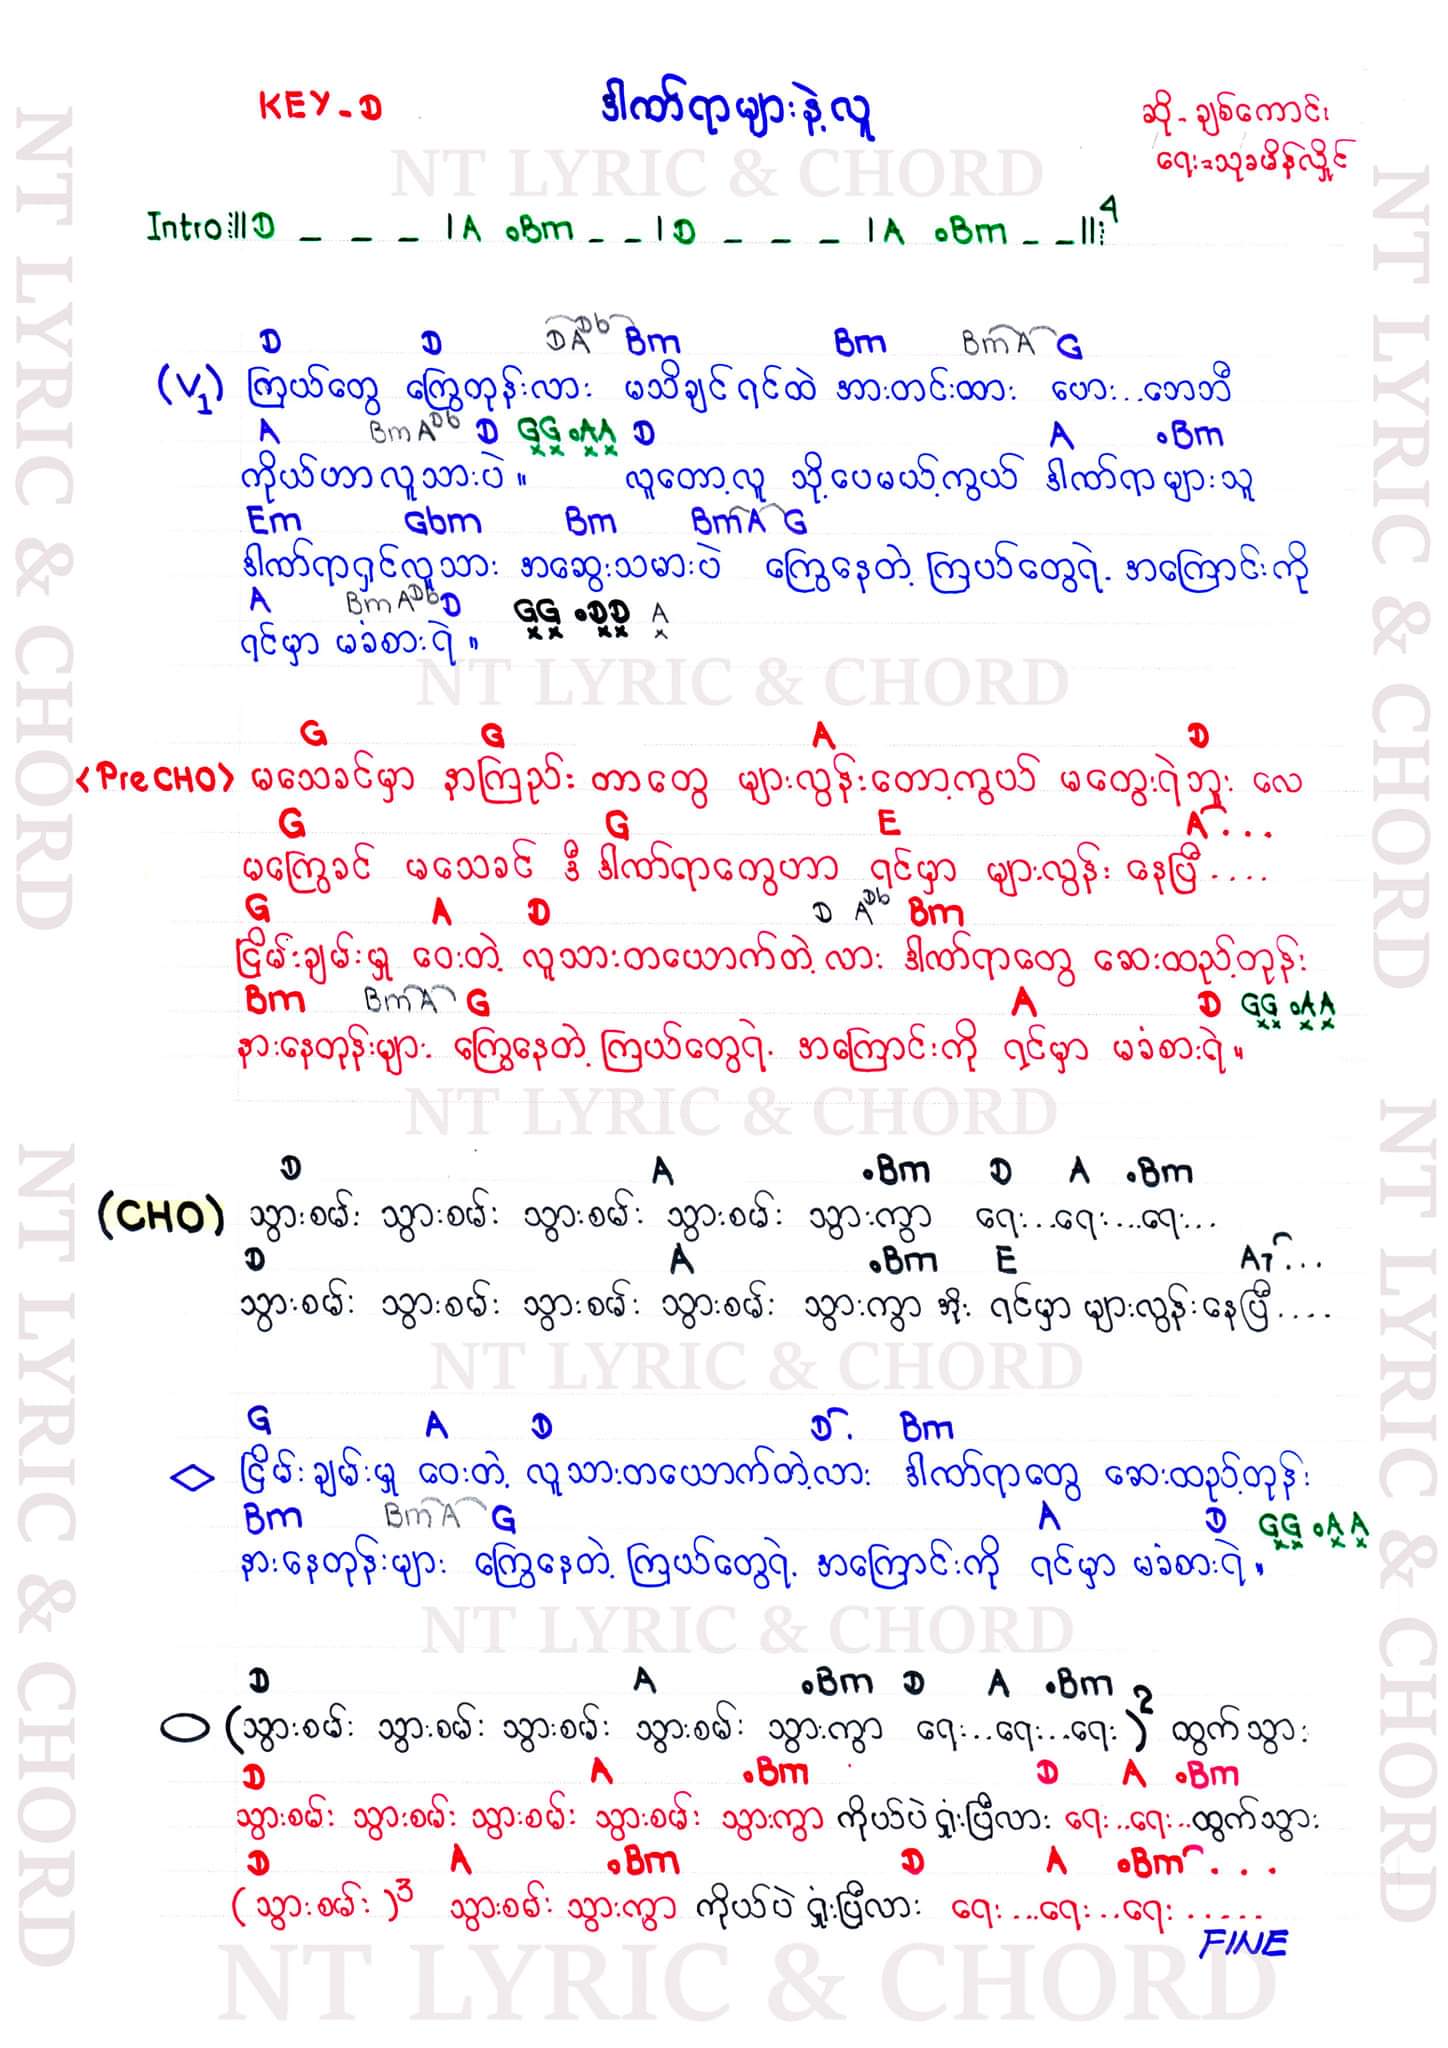 KEY-D ဒါဏ်ရာများနဲ့လူ ဆို-ချစ်ကောင်း
ရေး=သုခမိန်လှိုင်
NT LYRIC & CHORD
Intro:||D _ _ _ |A •Bm _ _ |D _ _ _ |A •Bm _ _||:4
D D DADb Bm Bm BmA G
(V1) ကြယ်တွေ ကြွေတုန်းလား မသိချင်ရင်ထဲ အားတင်းထား ဟေး..ဘေဘီ
A BmADb D GG •AA D A •Bm
ကိုယ်ဟာလူသားပဲ။ လူတော့လူ သို့ပေမယ့်ကွယ် ဒါဏ်ရာများသူ
Em Gbm Bm BmA G
ဒါဏ်ရာရှင်လူသား အဆွေးသမားပဲ ကြွေနေတဲ့ ကြယ်တွေရဲ့ အကြောင်းကို
A BmADb D GG •DD A
ရင်မှာ မခံစားရဲ။
NT LYRIC & CHORD
G G A D
<Pre CHO> မသေခင်မှာ နာကြည်းတာတွေ များလွန်းတော့ကွယ် မတွေးရဲဘူး လေ
G G E A...
မကြွေခင် မသေခင် ဒီ ဒါဏ်ရာတွေဟာ ရင်မှာ များလွန်း နေပြီ....
G A D D ADb Bm
ငြိမ်းချမ်းမှု ဝေးတဲ့ လူသားတယောက်တဲ့လား ဒါဏ်ရာတွေ ဆေးထည့်တုန်း
Bm BmA G A D GG •AA
နားနေတုန်းများ ကြွေနေတဲ့ ကြယ်တွေရဲ့ အကြောင်းကို ရင်မှာ မခံစားရဲ။
NT LYRIC & CHORD
D A •Bm D A •Bm
(CHO) သွားစမ်း သွားစမ်း သွားစမ်း သွားစမ်း သွားကွာ ရေး..ရေး...ရေး...
D A •Bm E A7...
သွားစမ်း သွားစမ်း သွားစမ်း သွားစမ်း သွားကွာ အိုး ရင်မှာ များလွန်းနေပြီ....
NT LYRIC & CHORD
G A D D. Bm
ငြိမ်းချမ်းမှု ဝေးတဲ့ လူသားတယောက်တဲ့လား ဒါဏ်ရာတွေ ဆေးထည့်တုန်း
Bm BmA G A D GG •AA
နားနေတုန်းများ ကြွေနေတဲ့ ကြယ်တွေရဲ့ အကြောင်းကို ရင်မှာ မခံစားရဲ။
NT LYRIC & CHORD
D A •Bm D A •Bm
(သွားစမ်း သွားစမ်း သွားစမ်း သွားစမ်း သွားကွာ ရေး..ရေး...ရေး)2 ထွက်သွား
D A •Bm D A •Bm
သွားစမ်း သွားစမ်း သွားစမ်း သွားစမ်း သွားကွာ ကိုယ်ပဲ ရှုံးပြီလား ရေး..ရေး..ထွက်သွား
D A •Bm D A •Bm...
(သွားစမ်း)3 သွားစမ်း သွားကွာ ကိုယ်ပဲ ရှုံးပြီလား ရေး...ရေး..ရေး.....
FINE
NT LYRIC & CHORD
NT LYRIC & CHORD
NT LYRIC & CHORD
NT LYRIC & CHORD
NT LYRIC & CHORD